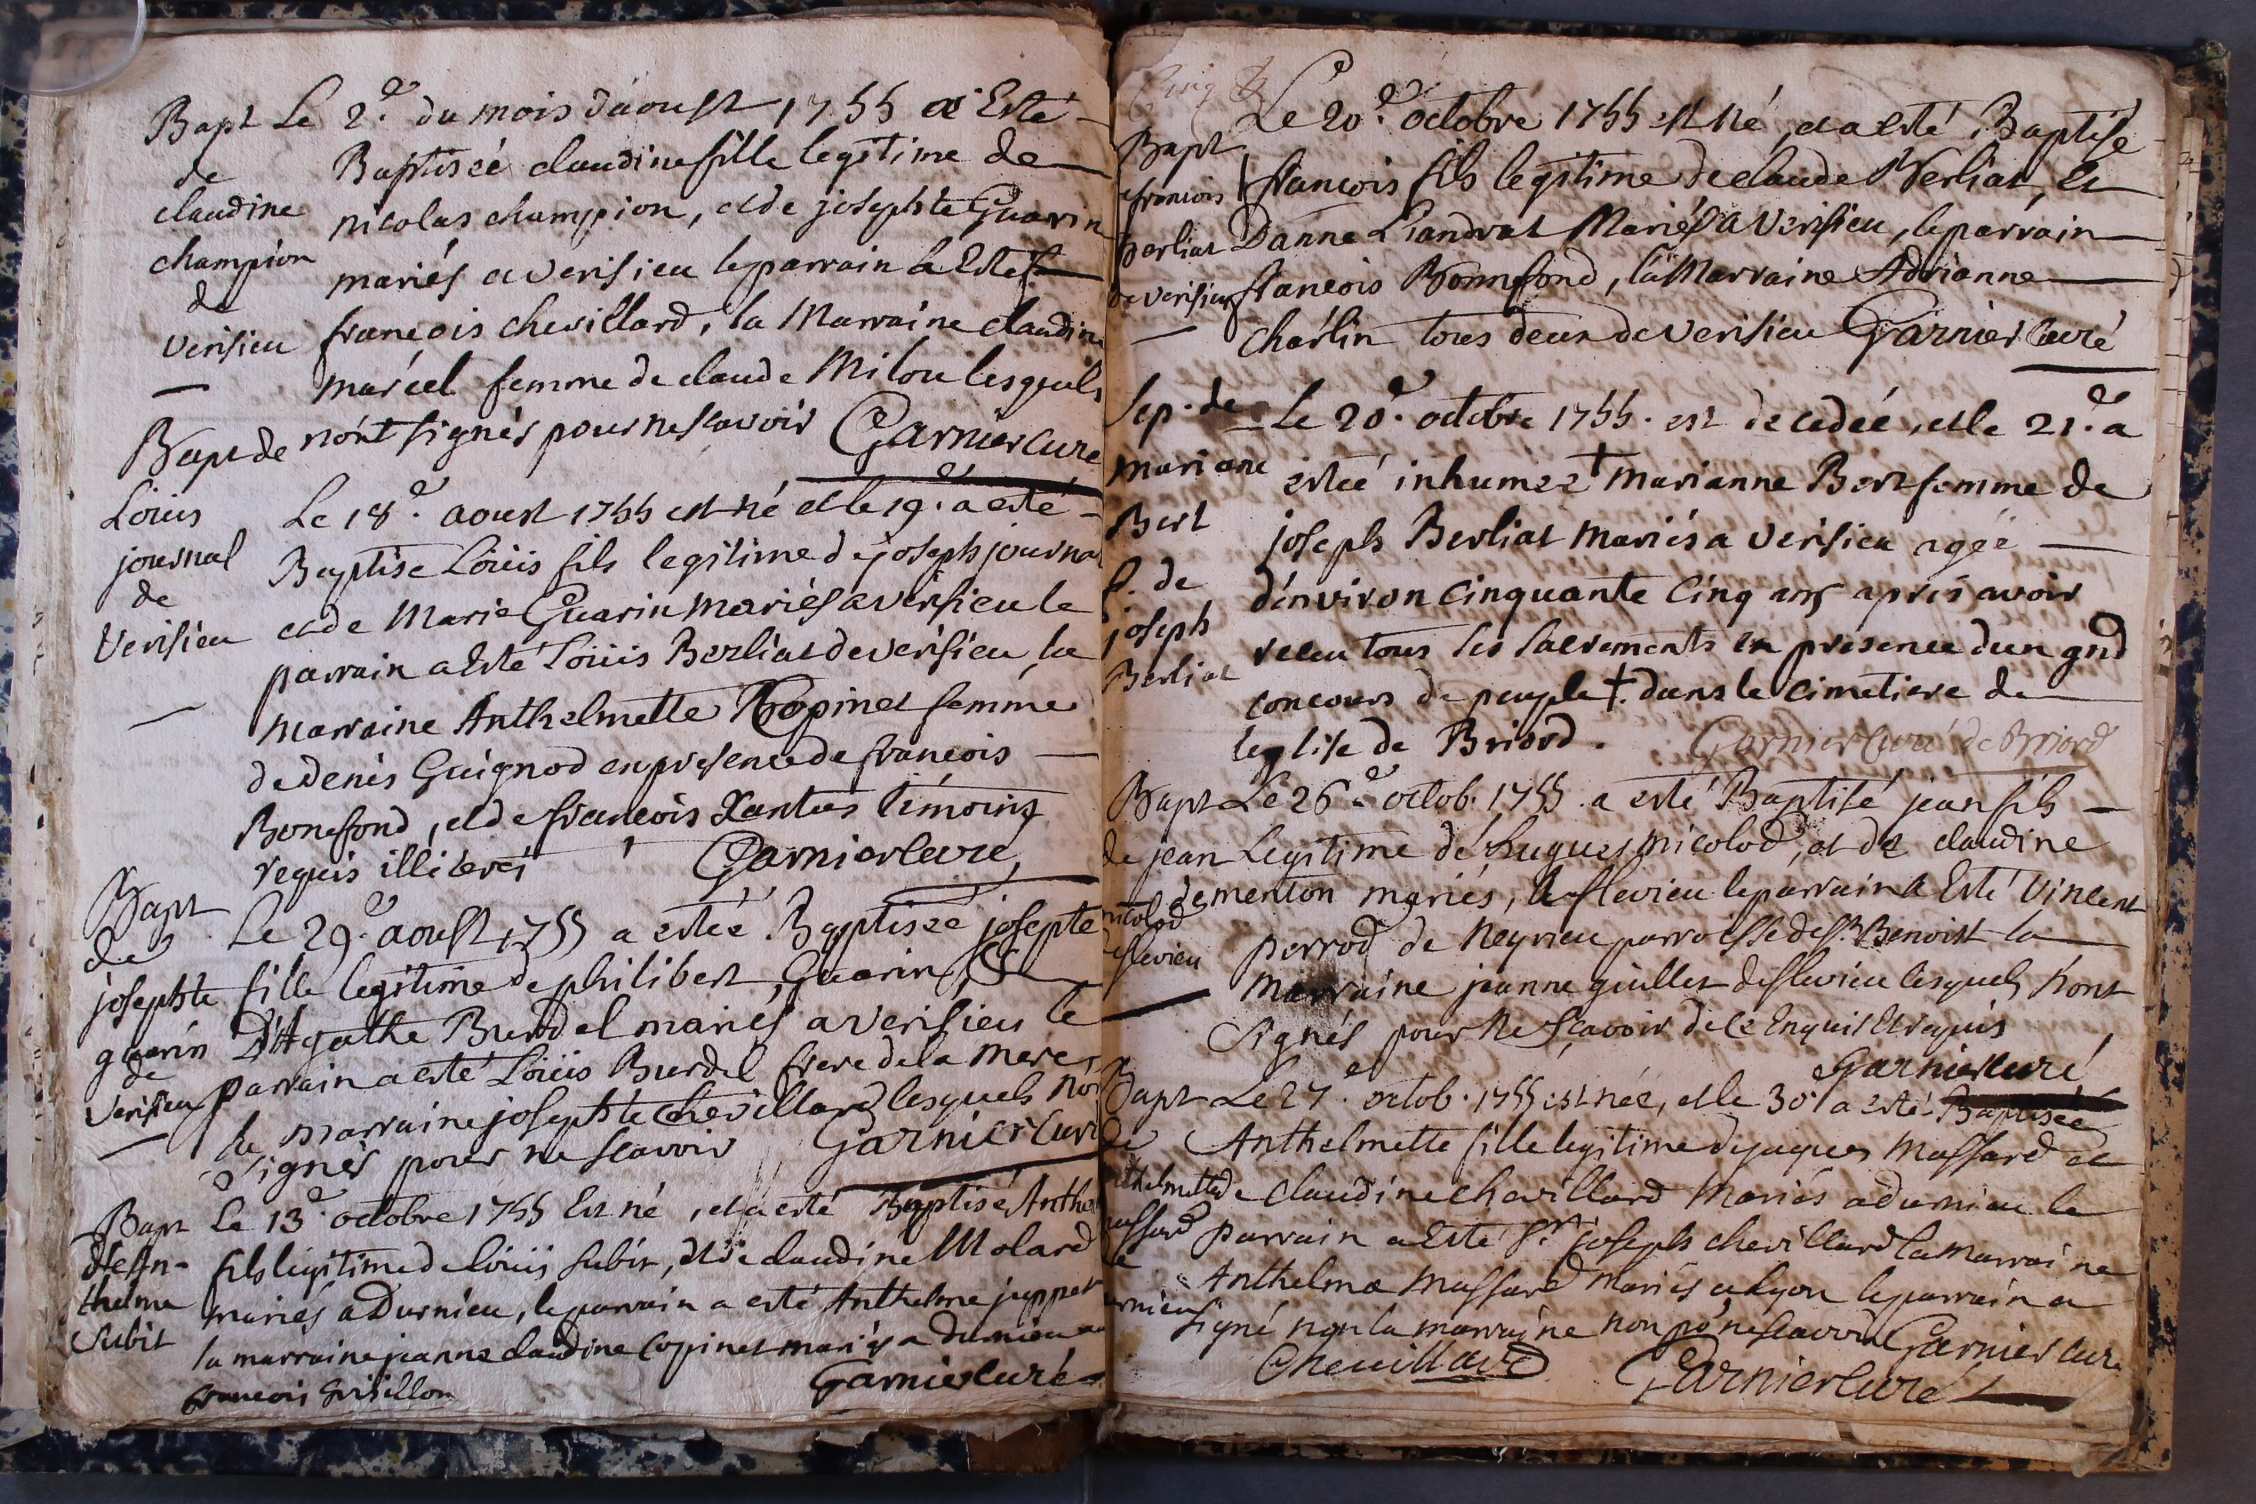 Bapt
de
claudine
champion
de
verisieu
Le 2.e du mois d'aoust 1755 a Esté
Baptiseé claudine fille legitime de
nicolas champion, et de josephte Guarin
mariés a verisieu le parrain a Esté
francois chevillard, la Marraine claudine
marcel femme de claude Milou lesquels
n'ont signés pour ne scavoir Garnier curé
Bapt de
Loüis
journal
de
Verisieu
Le 18.e aoust 1755 est né et le 19. a esté
Baptise Loüis fils legitime de joseph journal
et de Marie Guarin mariés a verisieu le
parrain a Esté Loüis Berliat de verisieu la
marraine Anthelmette Copinet femme
de Denis Guignod en presence de francois
Bonefond, et de francois Xantus témoins
requis illiterés Garnier curé
Bapt
de
josephte
guarin
de
verisieu
Le 29.e aoust 1755 a esteé Baptiseé josepte
fille legitime de philibert Guarin, &
D'Agathe Burdel mariés a verisieu le
parrain a esté Loüis Burdel frere de la mere
la marraine josephte chevillard lesquels n'on
signés pour ne scavoir Garnier curé
Bapt
d'An-
thelme
Subit
Le 13.e octobre 1755 Est né, et a esté Baptisé Anthe
fils legitime de Loüis Subit, et de claudine Molard
mariés a Durnieu, le parrain a esté Anthelme juppet
la marraine jeanne claudine Copinet mariés a durnieu
francois Grisillon Garnier curé
Bapt
francois
berliat
de verisieu
Le 20.e octobre 1755 est né, et a esté Baptise
francois fils legitime de claude Berliat, et
D'anne Liandrat Mariés a Verisieu, le parrain
francois Bonnefond, la Marraine Adrianne
Charlin tous deux de verisieu Garnier Curé
Sep. de
mariane
Bert
f. de
joseph
Berliat
Le 20.e octobre 1755. est decedée, et le 21.e a
estée inhumee † marianne Bert femme de
joseph Berliat mariés a verisieu ageé
d'environ cinquante cinq ans aprés avoir
receu tous les sacrements en presence d'un gnd
concours de peuple †. dans le cimetiere de
leglise de Briord. Garnier Curé de Briord
Bapt
de jean
nicolod
de flevieu
Le 26.e octob. 1755 a esté Baptisé jean fils
Legitime de hugues nicolod, et de claudine
dementon mariés, a flevieu le parrain a Esté Vincent
perrod de Neyrieu parroisse de St Benoist la
marraine jeanne guillet de flevieu lesquels n'ont
signés pour ne scavoir de ce Enquis et requis
Garnier curé
Bapt
de
nthelmette
assard
de
urnieu
Le 27.e octob. 1755 est neé, et le 30.e a esté Baptisée
Anthelmette fille legitime de jaques Massard et
de claudine chevillard mariés a durnieu le
parrain a Esté Sr. joseph chevillard la marraine
Anthelme Massard mariés a Lyon le parrain a
signé non la marraine non po' ne scavoir Garnier Curé
Chevillard Garnier Curé